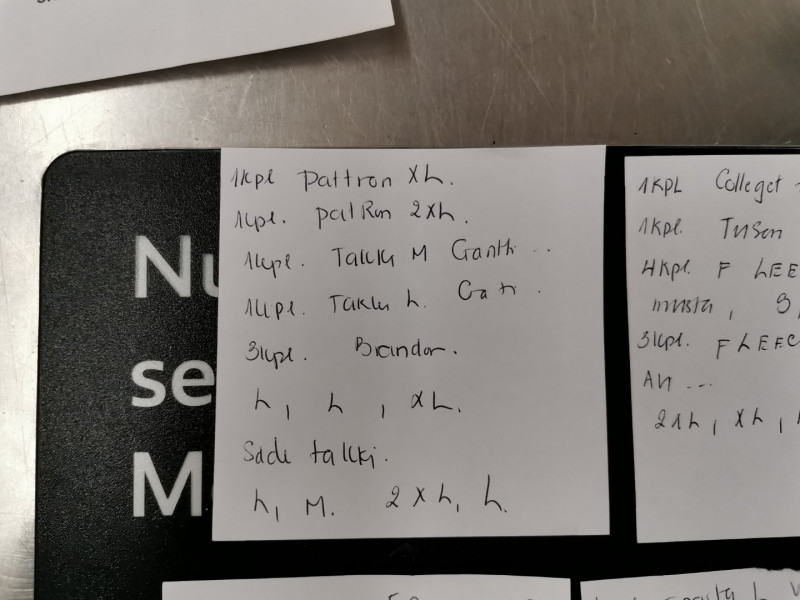 1kpl Pattron XL.
1kpl. patRon 2XL.
1kpl. Takki M Ganth ...
1kpl. Takki L. Ga
3kpl. Brandon.
L, L, XL.
Sade takki.
L, M. 2XL, L.
1KPL Colleget
1kpl.
4kpl. F LEE
musta, S,
3kpl. FLEEC
AN ...
2XL, XL,
Nu
se
M